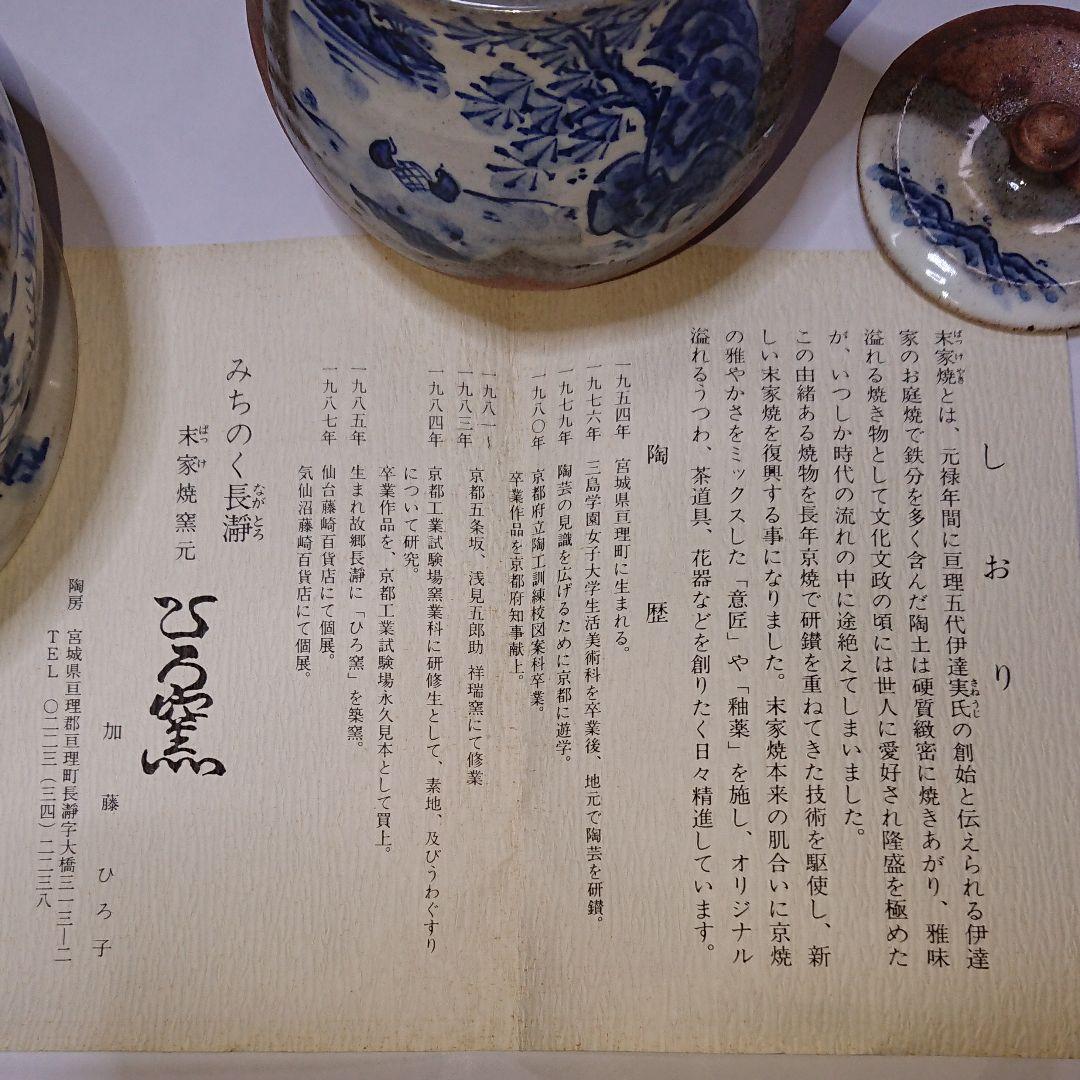 しおり
末家焼とは、元禄年間に亘理五代伊達実氏の創始と伝えられる伊達
家のお庭焼で鉄分を多く含んだ陶土は硬質緻密に焼きあがり、雅味
溢れる焼き物として文化文政の頃には世人に愛好され隆盛を極めた
が、いつしか時代の流れの中に途絶えてしまいました。
この由緒ある焼物を長年京焼で研鑽を重ねてきた技術を駆使し、新
しい末家焼を復興する事になりました。末家焼本来の肌合いに京焼
の雅やかさをミックスした「意匠」や「釉薬」を施し、オリジナル
溢れるうつわ、茶道具、花器などを創りたく日々精進しています。
陶歴
一九五四年 宮城県亘理町に生まれる。
一九七六年 三島学園女子大学生活美術科を卒業後、地元で陶芸を研鑽。
一九七九年 陶芸の見識を広げるために京都に遊学。
一九八〇年 京都府立陶工訓練校図案科卒業。
卒業作品を京都府知事献上。
一九八一〜
一九八三年 京都五条坂、浅見五郎助 祥瑞窯にて修業
一九八四年 京都工業試験場窯業科に研修生として、素地、及びうわぐすり
について研究。
卒業作品を、京都工業試験場永久見本として買上。
一九八五年 生まれ故郷長瀞に「ひろ窯」を築窯。
仙台藤崎百貨店にて個展。
一九八七年 気仙沼藤崎百貨店にて個展。
みちのく長瀞
末家焼窯元
ひろ窯
加藤ひろ子
陶房 宮城県亘理郡亘理町長瀞字大橋三一三―二
TEL 〇二二三(三四)二二三八